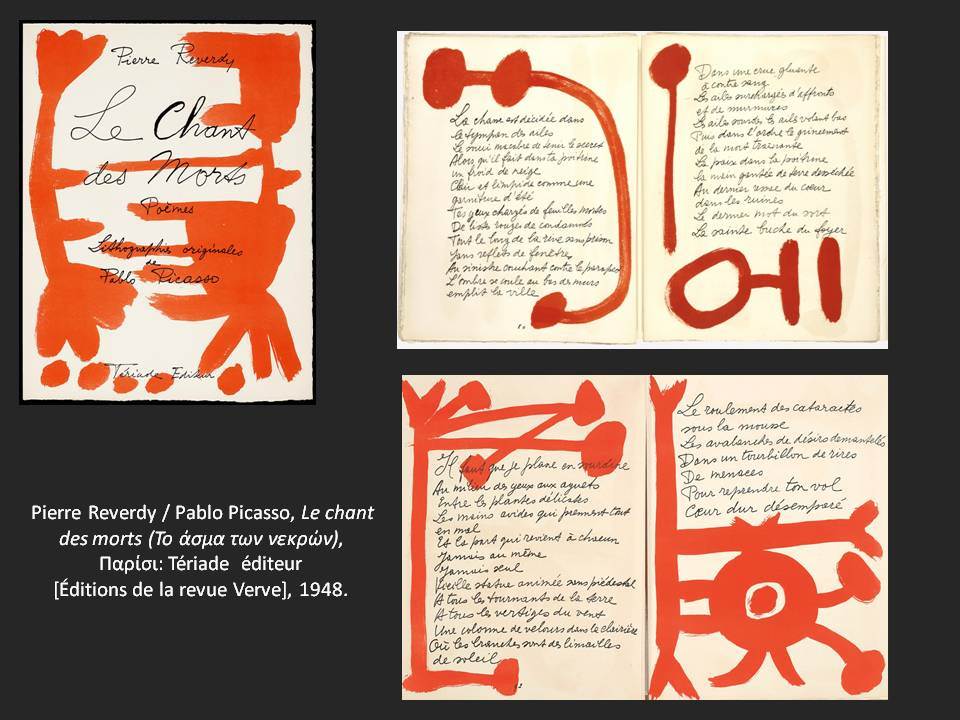 Pierre Reverdy
Le Chant
des Morts
Poèmes
Lithographies originales
de
Pablo Picasso
Tériade Editeur
La chance est décidée dans
le tympan des ailes
Le souci macabre de tenir le secret
Alors qu'il fait dans ta poitrine
un froid de neige
Clair et limpide comme une
garniture d'été
Tes yeux chargés de feuilles mortes
De listes rouges de condamnés
Tout le long de la rive sans prison
sans reflets de fenêtre
Au sinistre couchant contre le parapet
L'ombre se coule au bas des murs
emplit la ville
Dans une crue gluante
à contre sang
Les ailes surchargées d'affronts
et de murmures
Les ailes sourdes les ailes volent bas
Puis dans l'ordre le grincement
de la mort traversante
La paix dans la poitrine
la main gantée de terre desséchée
Au dernier cesse du cœur
dans les ruines
Le dernier mot du sort
La sainte buche du foyer
Il faut que je plane en sourdine
Au milieu des yeux aux aguets
Entre les plantes délicates
Les mains avides qui prennent tout
en mal
Et la part qui revient à chacun
Jamais au même
Jamais seul
Vieille statue animée sans piédestal
A tous les tournants de la terre
A tous les vertiges du vent
Une colonne de velours dans la clairière
Où les branches sont des limailles
de soleil
Le roulement des cataractes
sous la mousse
Les avalanches de désirs démantelés
Dans un tourbillon de rires
De menaces
Pour reprendre ton vol
Cœur dur désemparé
Pierre Reverdy / Pablo Picasso, Le chant
des morts (Το άσμα των νεκρών),
Παρίσι: Tériade éditeur
[Éditions de la revue Verve], 1948.